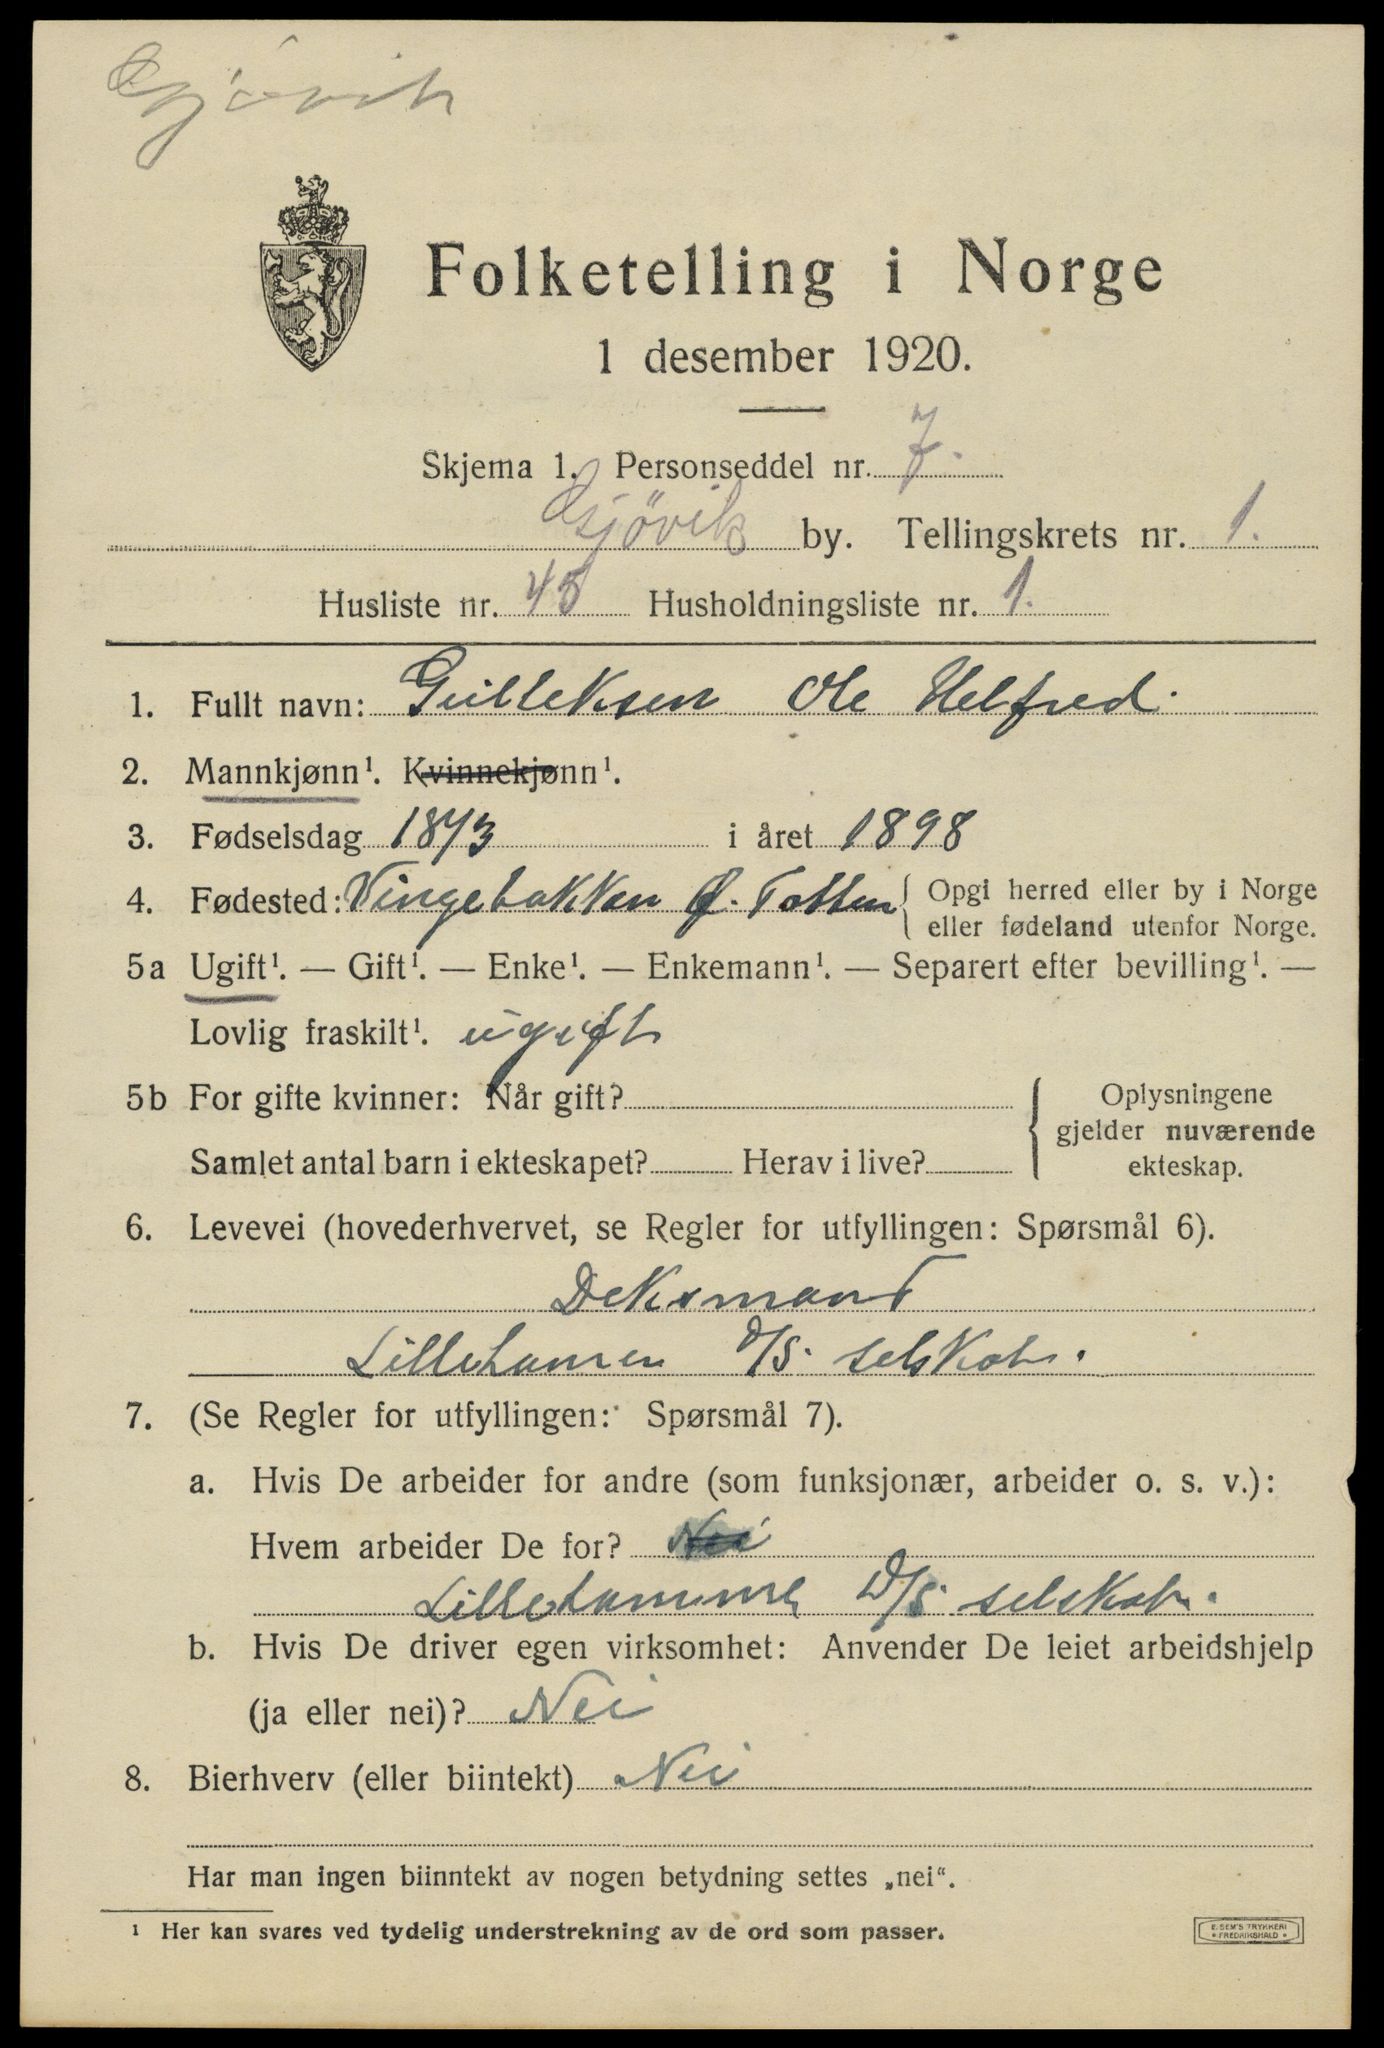 Gjövik
Folketelling i Norge
1 desember 1920.
Skjema 1. Personseddel nr. 7.
Gjövik by. Tellingskrets nr. 1.
Husliste nr. 45 Husholdningsliste nr. 1.
1. Fullt navn: Gulleksen Ole Helfred.
2. Mannkjønn¹. Kvinnekjønn¹.
3. Fødselsdag 18/3 i året 1898
4. Fødested: Vingebakken Ø. Totten { Opgi herred eller by i Norge
eller fødeland utenfor Norge.
5a Ugift¹. — Gift¹. — Enke¹. — Enkemann¹. — Separert efter bevilling¹. —
Lovlig fraskilt¹. ugift
5b For gifte kvinner: Når gift? { Oplysningene
gjelder nuværende
Samlet antal barn i ekteskapet? Herav i live? ekteskap.
6. Levevei (hovederhvervet, se Regler for utfyllingen: Spørsmål 6).
Deksmand
Lillehamer D/S. selskab.
7. (Se Regler for utfyllingen: Spørsmål 7).
a. Hvis De arbeider for andre (som funksjonær, arbeider o. s. v.):
Hvem arbeider De for? Nei
Lillehammer D/S. selskab.
b. Hvis De driver egen virksomhet: Anvender De leiet arbeidshjelp
(ja eller nei)? Nei
8. Bierhverv (eller biintekt) Nei
Har man ingen biinntekt av nogen betydning settes „nei“.
¹ Her kan svares ved tydelig understrekning av de ord som passer.
E. SEM'S TRYKKERI
• FREDRIKSHALD •